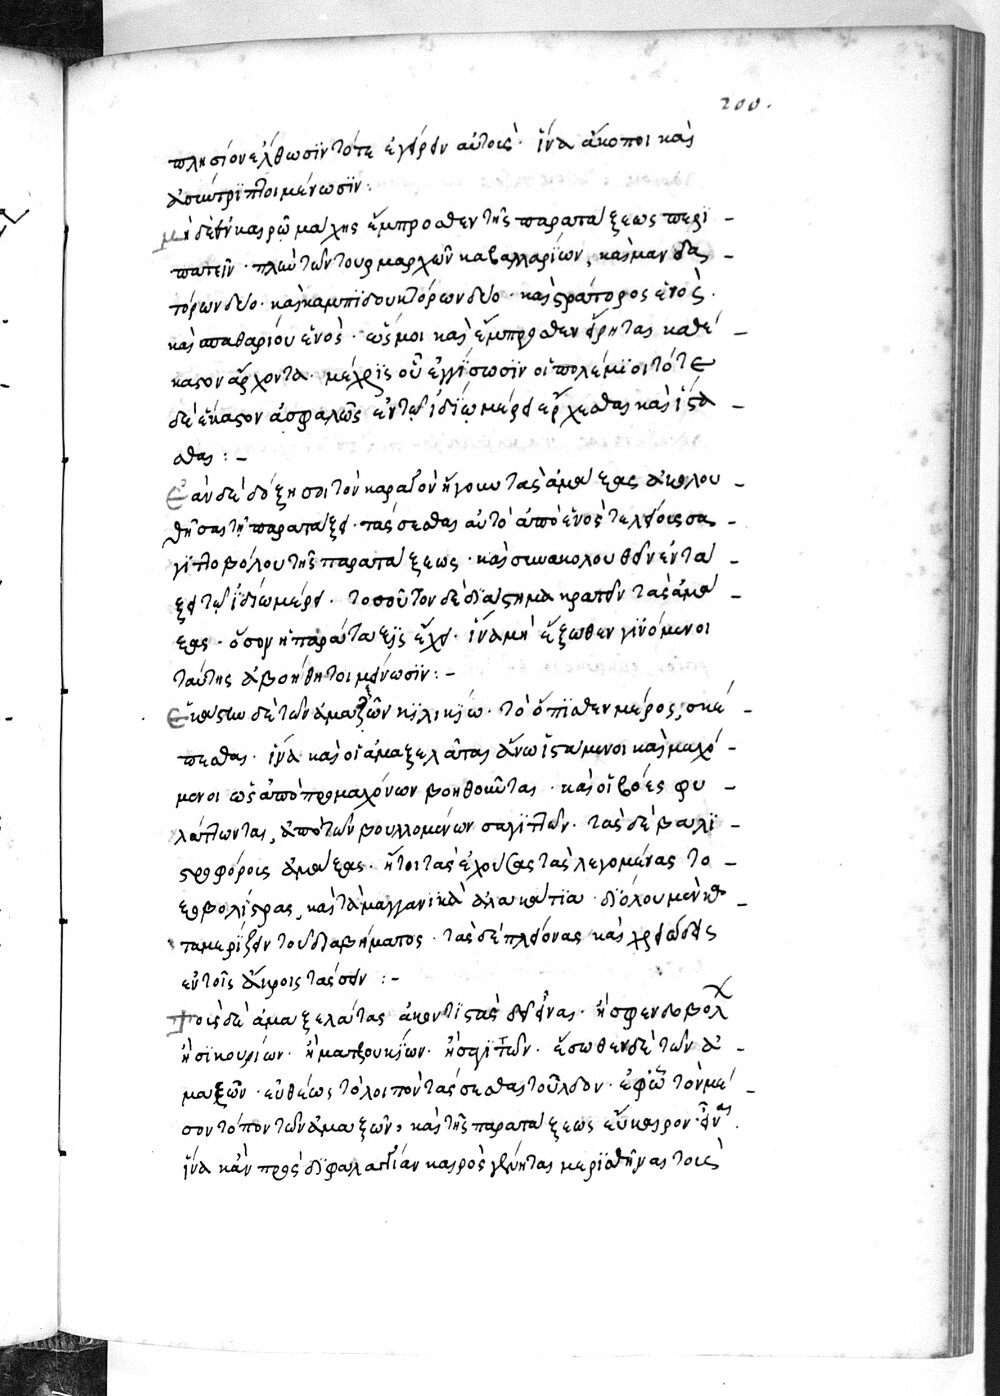 200.
πλησίον ἔλθωσϊν τότε ἐγείρειν αὐτούς· ἵνα ἄκοποι καὶ
ἀσύντριπτοι μένωσϊν:
μὴ δὲ ἐν καιρῷ μάχης ἔμπροσθεν τῆς παρατάξεως περϊ –
πατεῖν· πλὴν τῶν τουρμαρχῶν καβαλλαρίων, καὶ μανδα –
τόρων δύο· καὶ καμπϊδουκτόρων δύο· καὶ στράτορος ἑνὸς·
καὶ σπαθαρίου ἑνὸς· ὡς μοι καὶ ἔμπροσθεν εἴρηται καθέ –
καστον ἄρχοντα· μέχρις οὗ ἐγγίσωσϊν οἱ πολέμϊοι τότε
δὲ ἕκαστον ἀσφαλῶς ἐν τῷ ἰδίῳ μέρει ἔρχεσθαι καὶ ἵστα –
σθαι: –
Ἐὰν δὲ δόξῃ σοι τὸν καραγὸν ἤγουν τὰς ἁμάξας ἀκολου –
θῆσαι τῇ παρατάξει· τάσσεσθαι αὐτὸ ἀπὸ ἑνὸς τελείους σα –
γϊττοβόλου τῆς παρατάξεως· καὶ συνακολουθεῖν ἐν τά –
ξει τῷ ἰδίῳ μέρει· τοσοῦτον δὲ διάστημα κρατεῖν τὰς ἁμά –
ξας· ὅσον ἡ παράταξϊς ἔχει· ἵνα μὴ ἔξωθεν γϊνόμενοι
ταύτης ἀβοήθητοι μείνωσϊν: –
Ἑκάστω δὲ τῶν ἁμαξῶν κϊλικίω· τὸ ὄπϊσθεν μέρος, σκέ –
πεσθαι· ἵνα καὶ οἱ ἁμαξελάται ἄνω ἱστάμενοι καὶ μαχό –
μενοι ὡς ἀπὸ προμαχόνων βοηθοῦνται· καὶ οἱ βόες φυ –
λάττωνται, ἀπὸ τῶν βουλλομένων σαγϊττῶν· τὰς δὲ βαλϊ –
στροφόρους ἁμάξας· ἤτοι τὰς ἐχούσας τὰς λεγομένας το –
ξοβολίστρας, καὶ τὰ μαγγανικὰ ἀλακάτϊα· δϊόλου μὲν κα –
ταμερίζειν τοῦ διαβήματος· τὰς δὲ πλείονας καὶ χρειώδεις
ἐν τοῖς ἄκροις τάσσειν: –
Τοὺς δὲ ἁμαξελάτας ἀκοντϊστὰς δεῖ εἶναι· ἢ σφενδοβολ
ἢ σϊκουρίων· ἢ ματζουκίων· ἢ σαγϊττῶν· ἔσωθεν δὲ τῶν ἁ –
μαξῶν· εὐθέως τὸ λοιπὸν τάσσεσθαι τοῦλδον· ἐφ' ᾧ τὸν μέ –
σον τόπον τῶν ἁμαξῶν, καὶ τῆς παρατάξεως εὔκαιρον εἶναι.
ἵνα κἂν πρὸς δϊφαλαγγίαν καιρὸς γένηται μερϊσθῆναι τοὺς